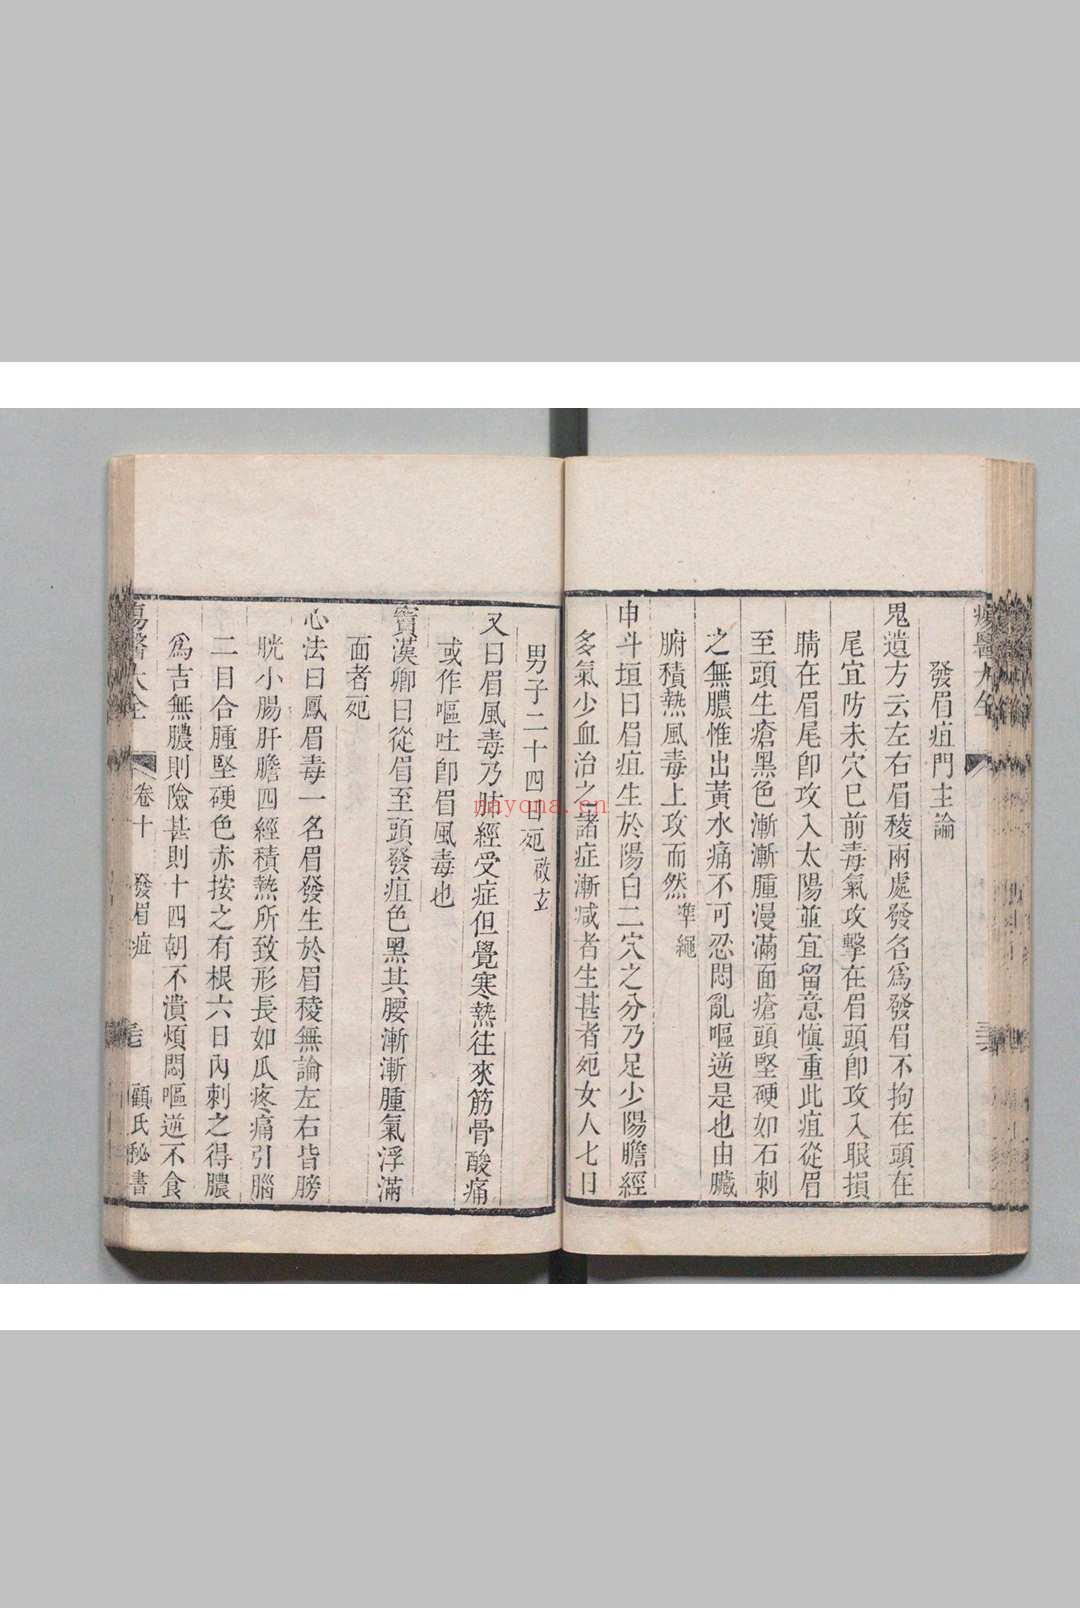 瘍醫大全
發眉疽門主論
鬼遺方云左右眉稜兩處發名爲發眉不拘在頭在
尾宜防未穴已前毒氣攻擊在眉頭卽攻入眼損
睛在眉尾卽攻入太陽並宜留意愼重此疽從眉
至頭生瘡黑色漸漸腫漫滿面瘡頭堅硬如石刺
之無膿惟出黃水痛不可忍悶亂嘔逆是也由臟
腑積熱風毒上攻而然準繩
申斗垣曰眉疽生於陽白二穴之分乃足少陽膽經
多氣少血治之諸症漸減者生甚者死女人七日
男子二十四日死啟玄
又曰眉風毒乃肺經受症但覺寒熱往來筋骨酸痛
或作嘔吐卽眉風毒也
竇漢卿曰從眉至頭發疽色黑其腰漸漸腫氣浮滿
面者死
心法曰鳳眉毒一名眉發生於眉稜無論左右皆膀
胱小腸肝膽四經積熱所致形長如瓜疼痛引腦
二目合腫堅硬色赤按之有根六日內刺之得膿
爲吉無膿則險甚則十四朝不潰煩悶嘔逆不食
瘍醫大全 卷十 發眉疽 顧氏秘書
nayona.cn